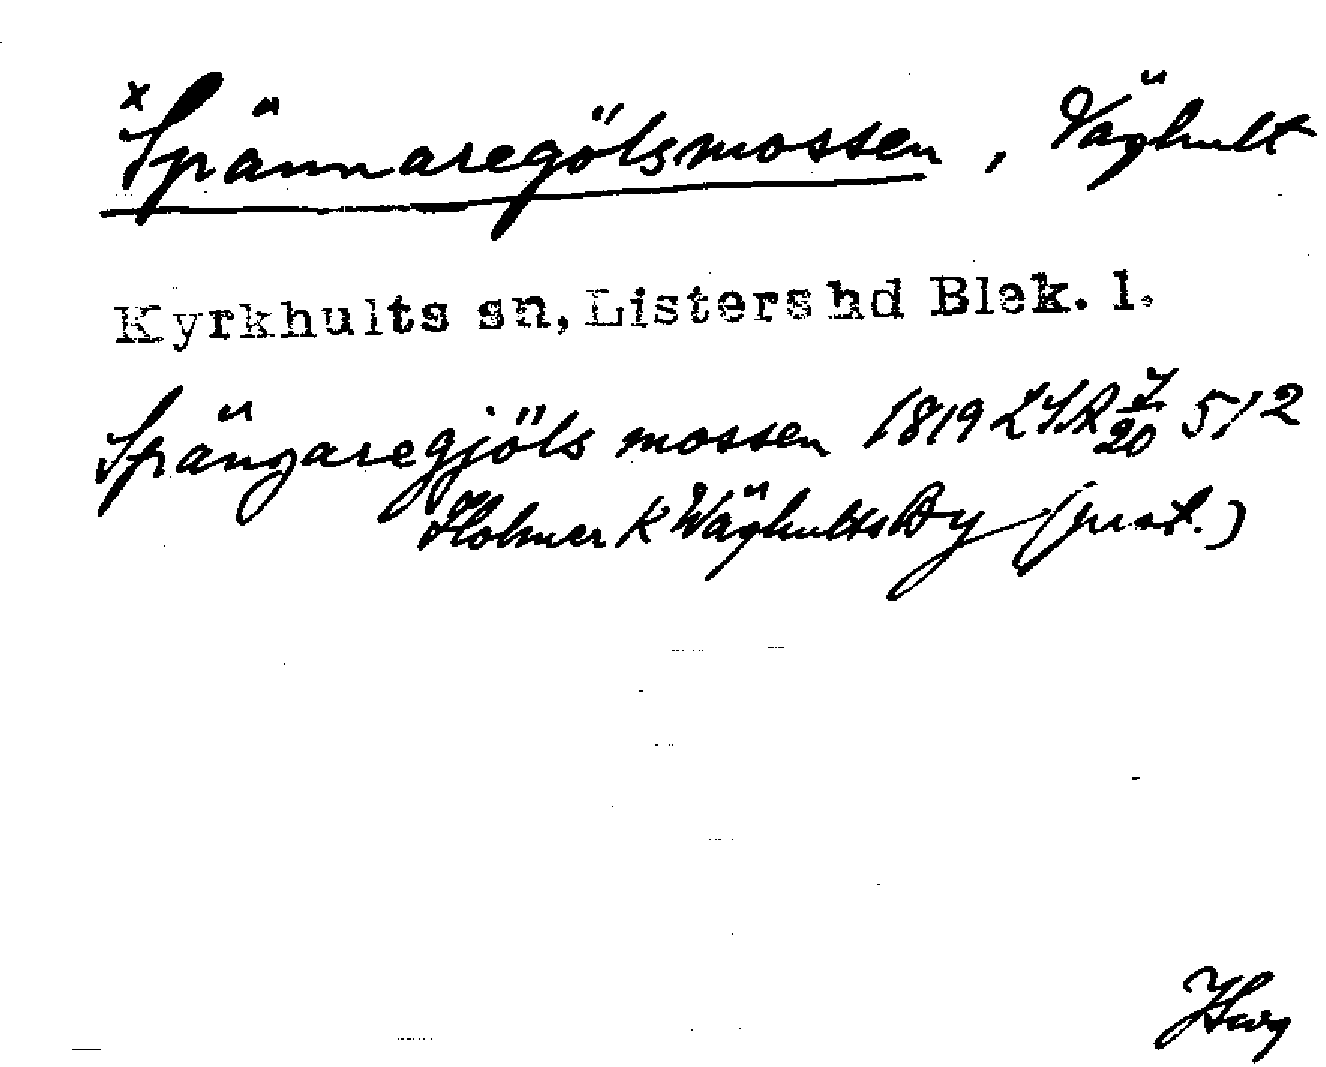 x Spännaregölsmossen, Väghult
Kyrkhults sn, Listers hd Blek. l.
Spängaregjöls mossen 1819 LSA 512
Holmer K Wäghults By